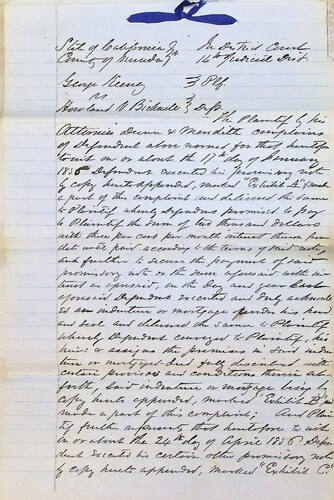 State of California } In District Court
County of Nevada } 14th Judicial Dist
George Keeney } Plf.
vs
Howland W Bicknell } Dft.
The Plaintiff by his
Attornies Dunn & Meredith complains
of Defendant above named for that, heretofore
to wit on or about the 17th day of January
1856 Defendant executed his promissory note
by copy hereto appended, marked "Exhibit A" & made
a part of this complaint, and delivered the same
to Plaintiff whereby Defendant promised to pay
to Plaintiff the sum of two thousand dollars
with three per cent per month interest thereon from
date until paid according to the terms of said note
and further to secure the payment of said
promissory note or the sum aforesaid with in-
terest as aforesaid, on the day and year last
aforesaid Defendant executed and duly acknowl-
ed an indenture or mortgage under his hand
and seal and delivered the same to Plaintiff
whereby Defendant conveyed to Plaintiff, his
heirs or assigns the premises in said inden-
ture or mortgage deed fully described with
certain provisoes and conditions therein set
forth, said indenture or mortgage being by
copy hereto appended, marked "Exhibit B" and
made a part of this complaint; And Plain-
tiff further represents that heretofore to wit
on or about the 24th day of April 1856 Defen-
dant executed his certain other promissory note
by copy hereto appended, marked "Exhibit C"